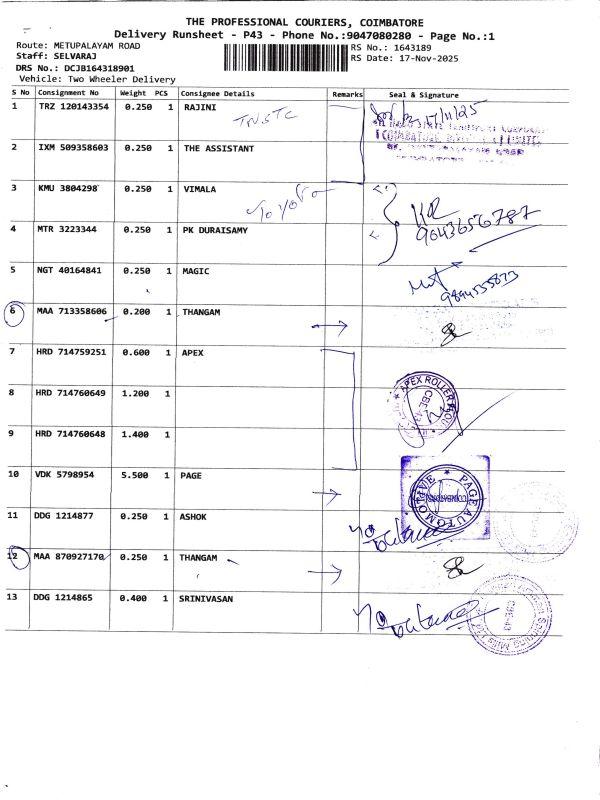 THE PROFESSIONAL COURIERS, COIMBATORE
Delivery Runsheet - P43 - Phone No.:9047080280 - Page No.:1
Route: METUPALAYAM ROAD
Staff: SELVARAJ
DRS No.: DCJB164318901
Vehicle: Two Wheeler Delivery
RS No.: 1643189
RS Date: 17-Nov-2025
S No Consignment No Weight PCS Consignee Details Remarks Seal & Signature
1 TRZ 120143354 0.250 1 RAJINI
TNSTC
17/11/25
2 IXM 509358603 0.250 1 THE ASSISTANT
3 KMU 3804298 0.250 1 VIMALA
9043656787
4 MTR 3223344 0.250 1 PK DURAISAMY
5 NGT 40164841 0.250 1 MAGIC
6 MAA 713358606 0.200 1 THANGAM
7 HRD 714759251 0.600 1 APEX
8 HRD 714760649 1.200 1
APEX ROLLER
CBE-43
9 HRD 714760648 1.400 1
10 VDK 5798954 5.500 1 PAGE
PAGE AUTOMOTIVE
COIMBATORE
11 DDG 1214877 0.250 1 ASHOK
12 MAA 870927170 0.250 1 THANGAM
13 DDG 1214865 0.400 1 SRINIVASAN
CBE-43